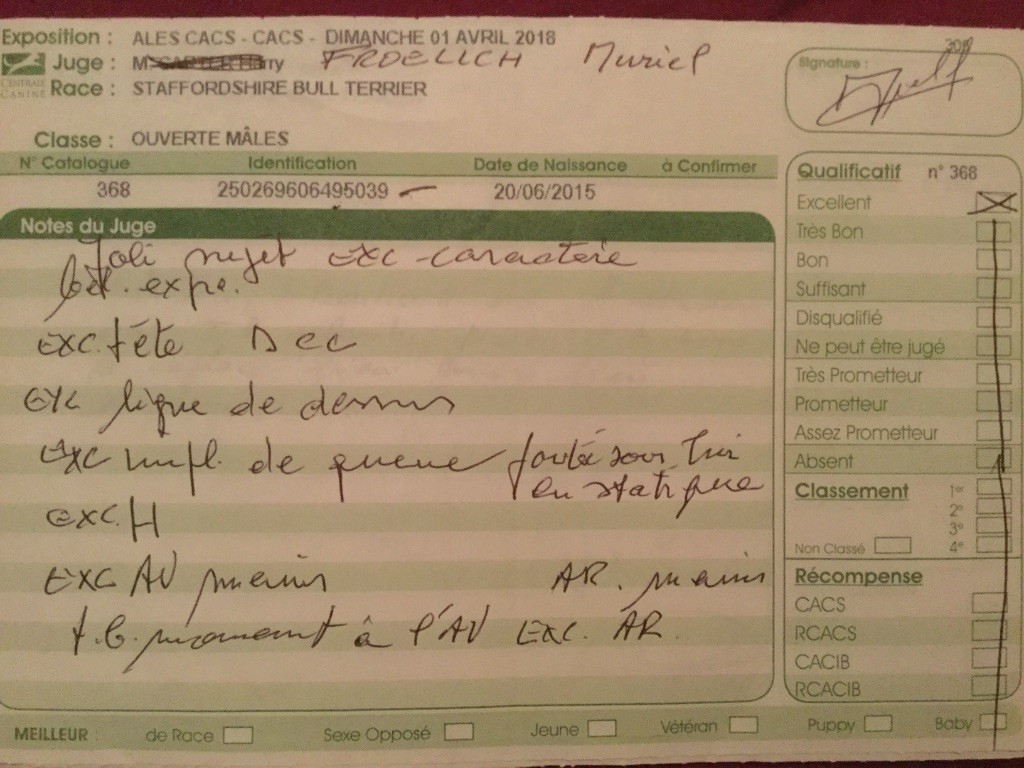 Exposition : ALES CACS - CACS - DIMANCHE 01 AVRIL 2018
Juge : FROELICH Muriel
CENTRALE CANINE
Race : STAFFORDSHIRE BULL TERRIER
Signature :
Classe : OUVERTE MÂLES
N° Catalogue Identification Date de Naissance à Confirmer
368 250269606495039 20/06/2015
Notes du Juge
Joli sujet exc caractère
bel. expre.
EXC. tête Dec
EXC ligne de dessus
EXC impl. de queue
en statique
EXC. H
EXC AV mains AR. mains
t.b. mouvement à l'AV EXC. AR.
Qualificatif n° 368
Excellent
Très Bon
Bon
Suffisant
Disqualifié
Ne peut être jugé
Très Prometteur
Prometteur
Assez Prometteur
Absent
Classement 1er
2e
3e
Non Classé 4e
Récompense
CACS
RCACS
CACIB
RCACIB
MEILLEUR : de Race Sexe Opposé Jeune Vétéran Puppy Baby